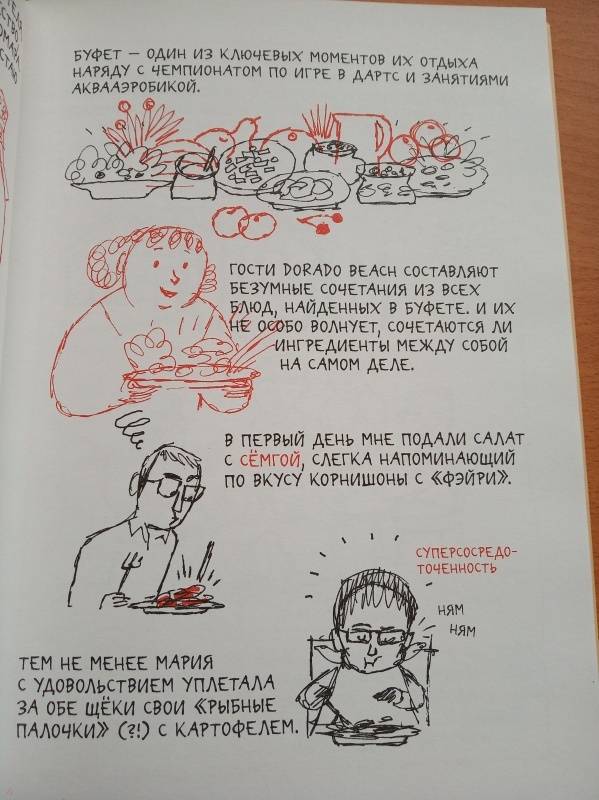 БУФЕТ — ОДИН ИЗ КЛЮЧЕВЫХ МОМЕНТОВ ИХ ОТДЫХА
НАРЯДУ С ЧЕМПИОНАТОМ ПО ИГРЕ В ДАРТС И ЗАНЯТИЯМИ
АКВААЭРОБИКОЙ.
ГОСТИ DORADO BEACH СОСТАВЛЯЮТ
БЕЗУМНЫЕ СОЧЕТАНИЯ ИЗ ВСЕХ
БЛЮД, НАЙДЕННЫХ В БУФЕТЕ. И ИХ
НЕ ОСОБО ВОЛНУЕТ, СОЧЕТАЮТСЯ ЛИ
ИНГРЕДИЕНТЫ МЕЖДУ СОБОЙ
НА САМОМ ДЕЛЕ.
В ПЕРВЫЙ ДЕНЬ МНЕ ПОДАЛИ САЛАТ
С СЁМГОЙ, СЛЕГКА НАПОМИНАЮЩИЙ
ПО ВКУСУ КОРНИШОНЫ С «ФЭЙРИ».
СУПЕРСОСРЕДО-
ТОЧЕННОСТЬ
НЯМ
НЯМ
ТЕМ НЕ МЕНЕЕ МАРИЯ
С УДОВОЛЬСТВИЕМ УПЛЕТАЛА
ЗА ОБЕ ЩЁКИ СВОИ «РЫБНЫЕ
ПАЛОЧКИ» (?!) С КАРТОФЕЛЕМ.